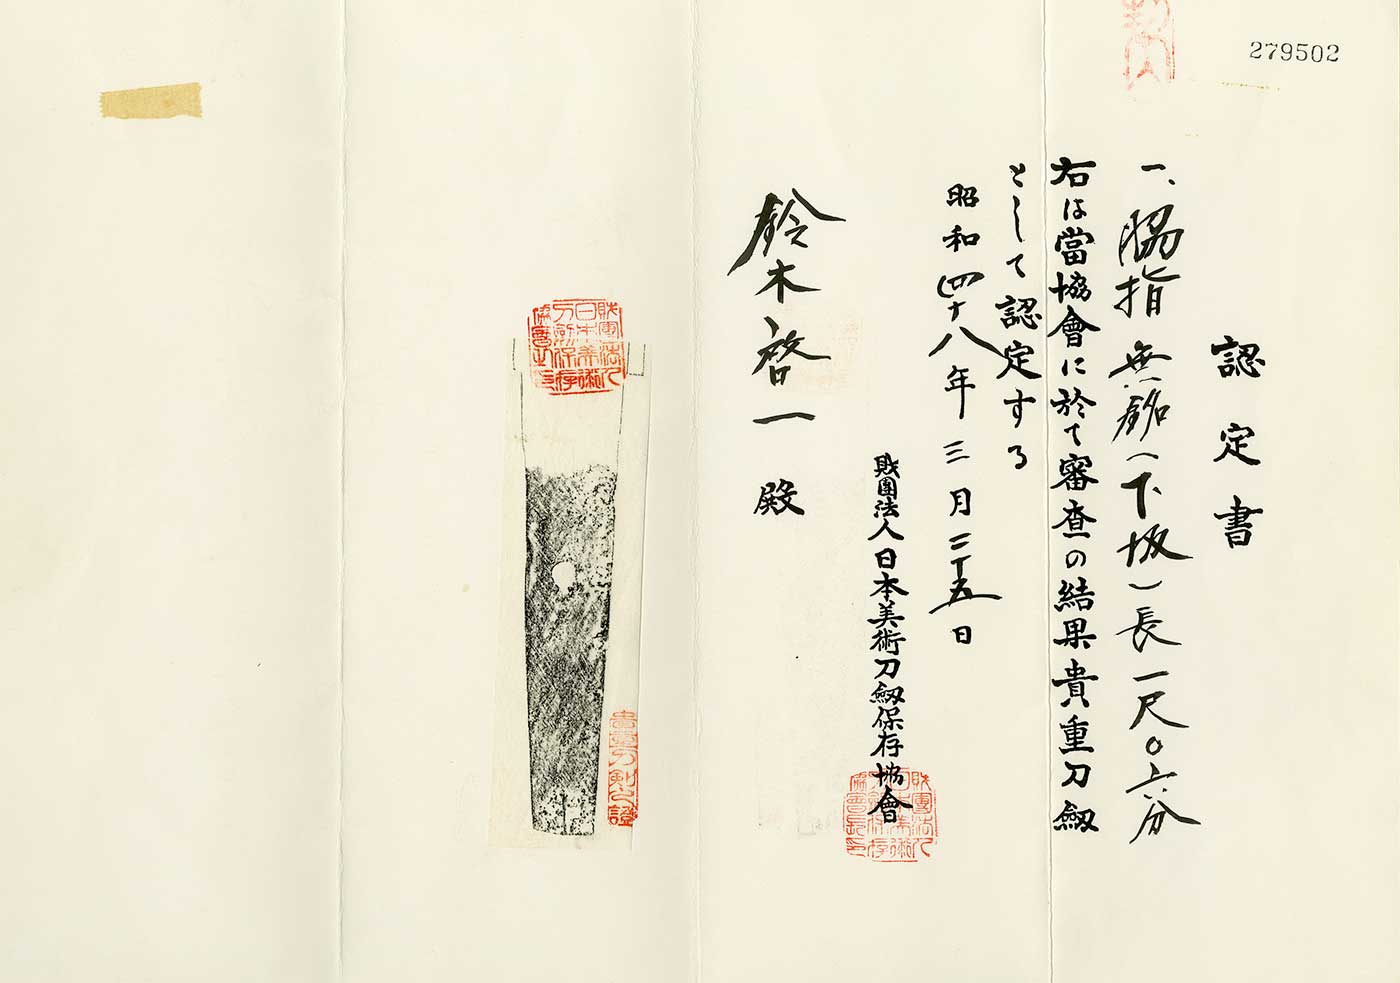 279502
認定書
一、脇指 無銘(下坂)長一尺〇六分
右は當協會に於て審査の結果貴重刀劔
として認定する
昭和四十八年三月二十五日
財團法人日本美術刀劔保存協會
鈴木啓一殿
財團法人
日本美術
刀劍保存
協會長印
財團法人
日本美術
刀劍保存
協會之印
貴重刀剣之證